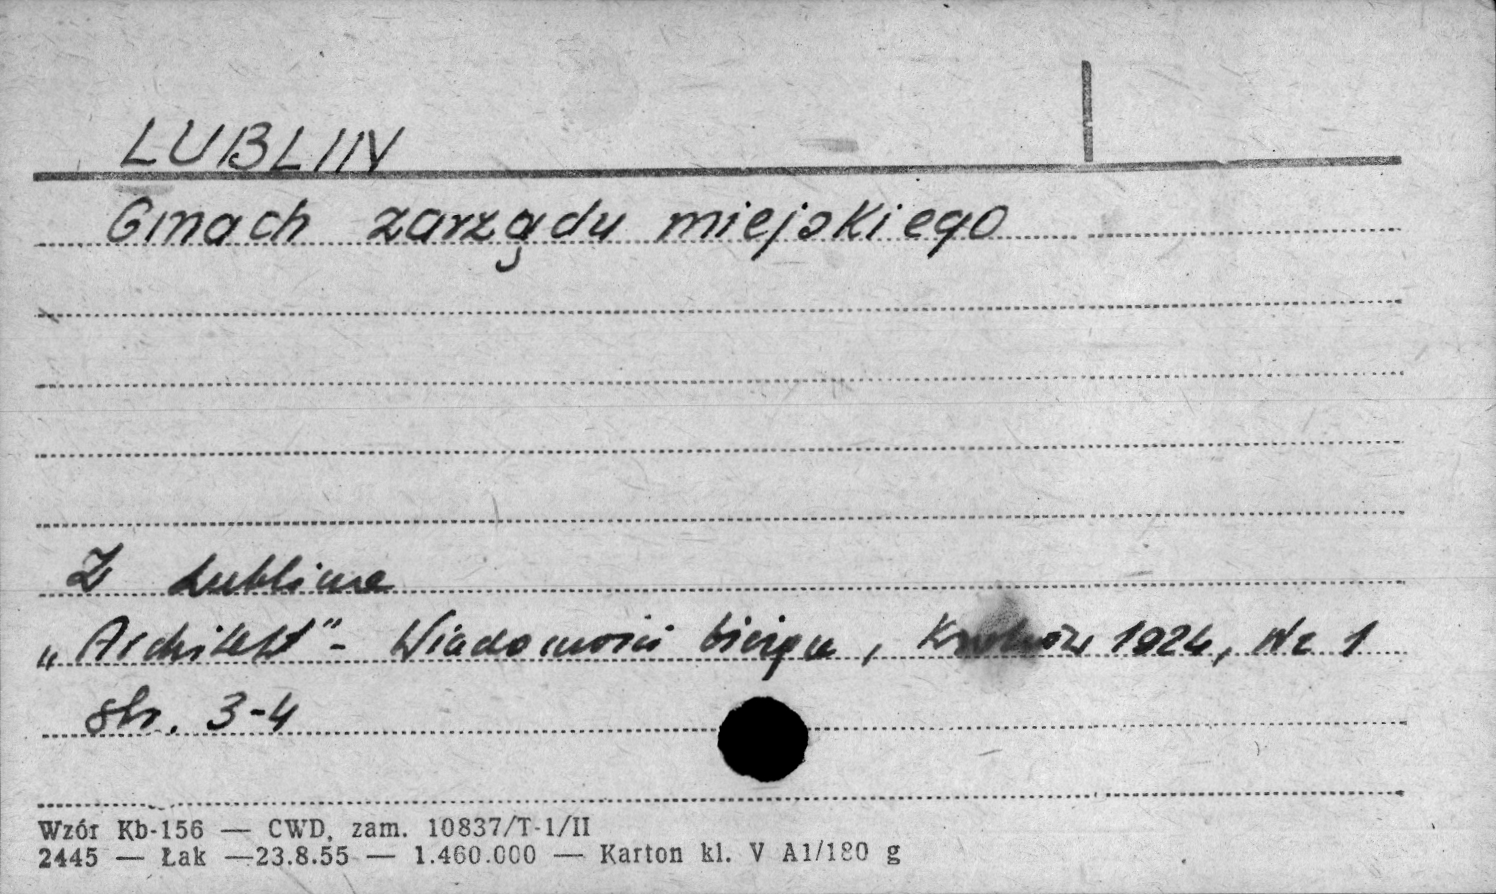 LUBLIN
Gmach zarządu miejskiego
Z Lublina
„Architekt"- Wiadomości bieżące, Kraków 1924, Nr 1
str. 3-4
Wzór Kb-156 — CWD, zam. 10837/T-1/II
2445 — Łak —23.8.55 — 1.460.000 — Karton kl. V A1/180 g